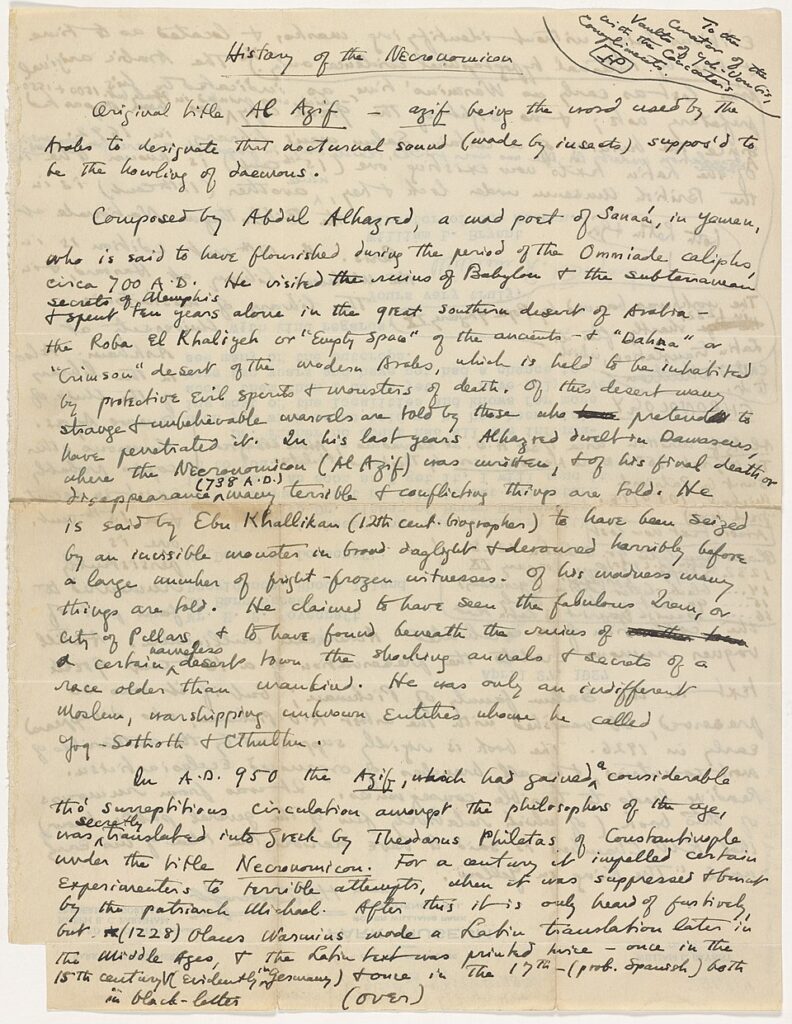 To the
Curator of the
Vaults of Yoh-Vombis,
with the Concocter's
Compliments.
History of the Necronomicon
Original title Al Azif — azif being the word used by the
Arabs to designate that nocturnal sound (made by insects) suppos'd to
be the howling of daemons.
Composed by Abdul Alhazred, a mad poet of Sanaá, in Yemen,
who is said to have flourished during the period of the Ommiade caliphs,
circa 700 A.D. He visited the ruins of Babylon & the subterranean
secrets of Memphis
& spent ten years alone in the great southern desert of Arabia —
the Roba El Khaliyeh or "Empty Space" of the ancients — & "Dahna" or
"Crimson" desert of the modern Arabs, which is held to be inhabited
by protective evil spirits & monsters of death. Of this desert many
strange & unbelievable marvels are told by those who pretend to
have penetrated it. In his last years Alhazred dwelt in Damascus,
where the Necronomicon (Al Azif) was written, & of his final death or
disappearance (738 A.D.) many terrible & conflicting things are told. He
is said by Ebn Khallikan (12th cent. biographer) to have been seized
by an invisible monster in broad daylight & devoured horribly before
a large number of fright-frozen witnesses. Of his madness many
things are told. He claimed to have seen the fabulous Irem, or
City of Pillars, & to have found beneath the ruins of
a certain nameless desert town the shocking annals & secrets of a
race older than mankind. He was only an indifferent
Moslem, worshipping unknown entities whom he called
Yog-Sothoth & Cthulhu.
In A.D. 950 the Azif, which had gained a considerable
tho' surreptitious circulation amongst the philosophers of the age,
was secretly translated into Greek by Theodorus Philetas of Constantinople
under the title Necronomicon. For a century it impelled certain
experimenters to terrible attempts, when it was suppressed & burnt
by the patriarch Michael. After this it is only heard of furtively,
but (1228) Olaus Wormius made a Latin translation later in
the Middle Ages, & the Latin text was printed twice — once in the
15th century (evidently in Germany) & once in the 17th — (prob. Spanish) both
in black-letter
(over)